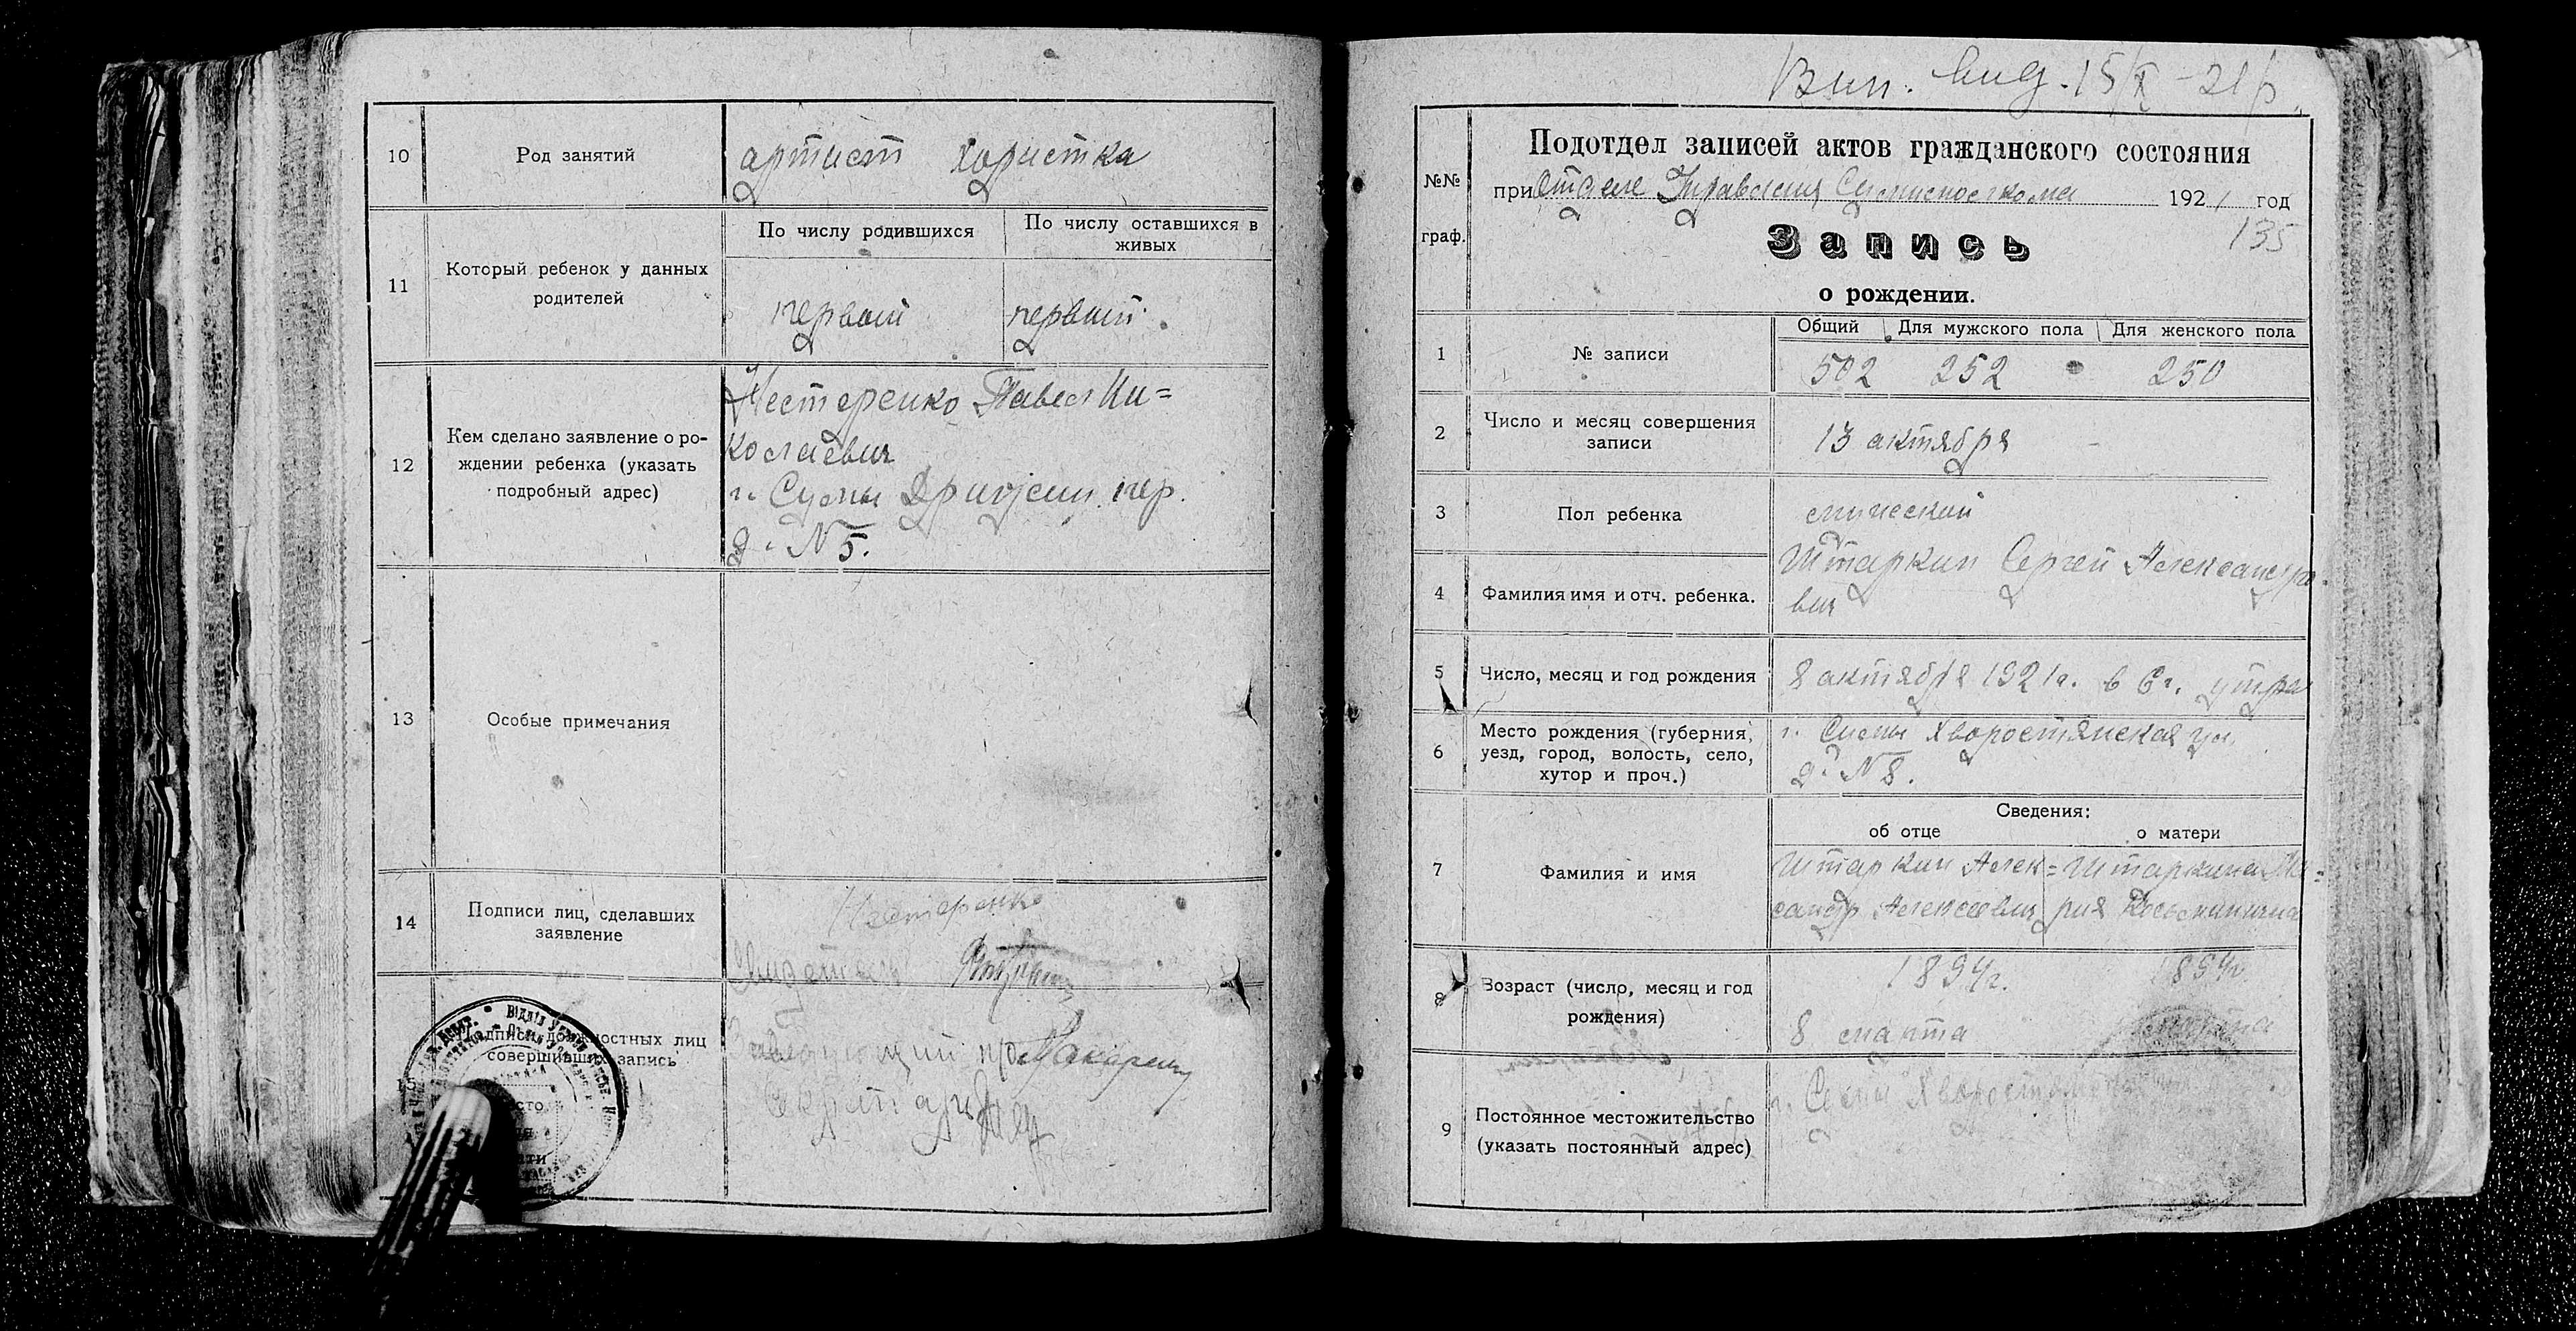 10
Род занятий
артист хористка
11
Который ребенок у данных
родителей
По числу родившихся
По числу оставшихся в
живых
первый
первый
12
Кем сделано заявление о ро-
ждении ребенка (указать
подробный адрес)
Нестеренко Павел Ни=
колаевич
г. Сумы пер.
д. № 5.
13
Особые примечания
14
Подписи лиц, сделавших
заявление
Нестеренко
Свидетель
остных лиц
совершивших запись
Заведующий
Секретарь
15/X - 21 р.
№№
граф.
Подотдел записей актов гражданского состояния
при Отделе Управления 1921 год
135
Запись
о рождении.
1
№ записи
Общий
Для мужского пола
Для женского пола
502 252 250
2
Число и месяц совершения
записи
13 актября
3
Пол ребенка
мужеский
4
Фамилия имя и отч. ребенка.
Штаркин Сергей Александро-
вич
5
Число, месяц и год рождения
8 актября 1921 г. в 6 ч. утра
6
Место рождения (губерния,
уезд, город, волость, село,
хутор и проч.)
г. Сумы Хворостянская ул.
д. № 8.
7
Фамилия и имя
Сведения:
об отце
о матери
Штаркин Алек=
сандр Алексеевич
Штаркина Ма=
рия
8
Возраст (число, месяц и год
рождения)
1894 г.
8 марта
9
Постоянное местожительство
(указать постоянный адрес)
г. Сумы